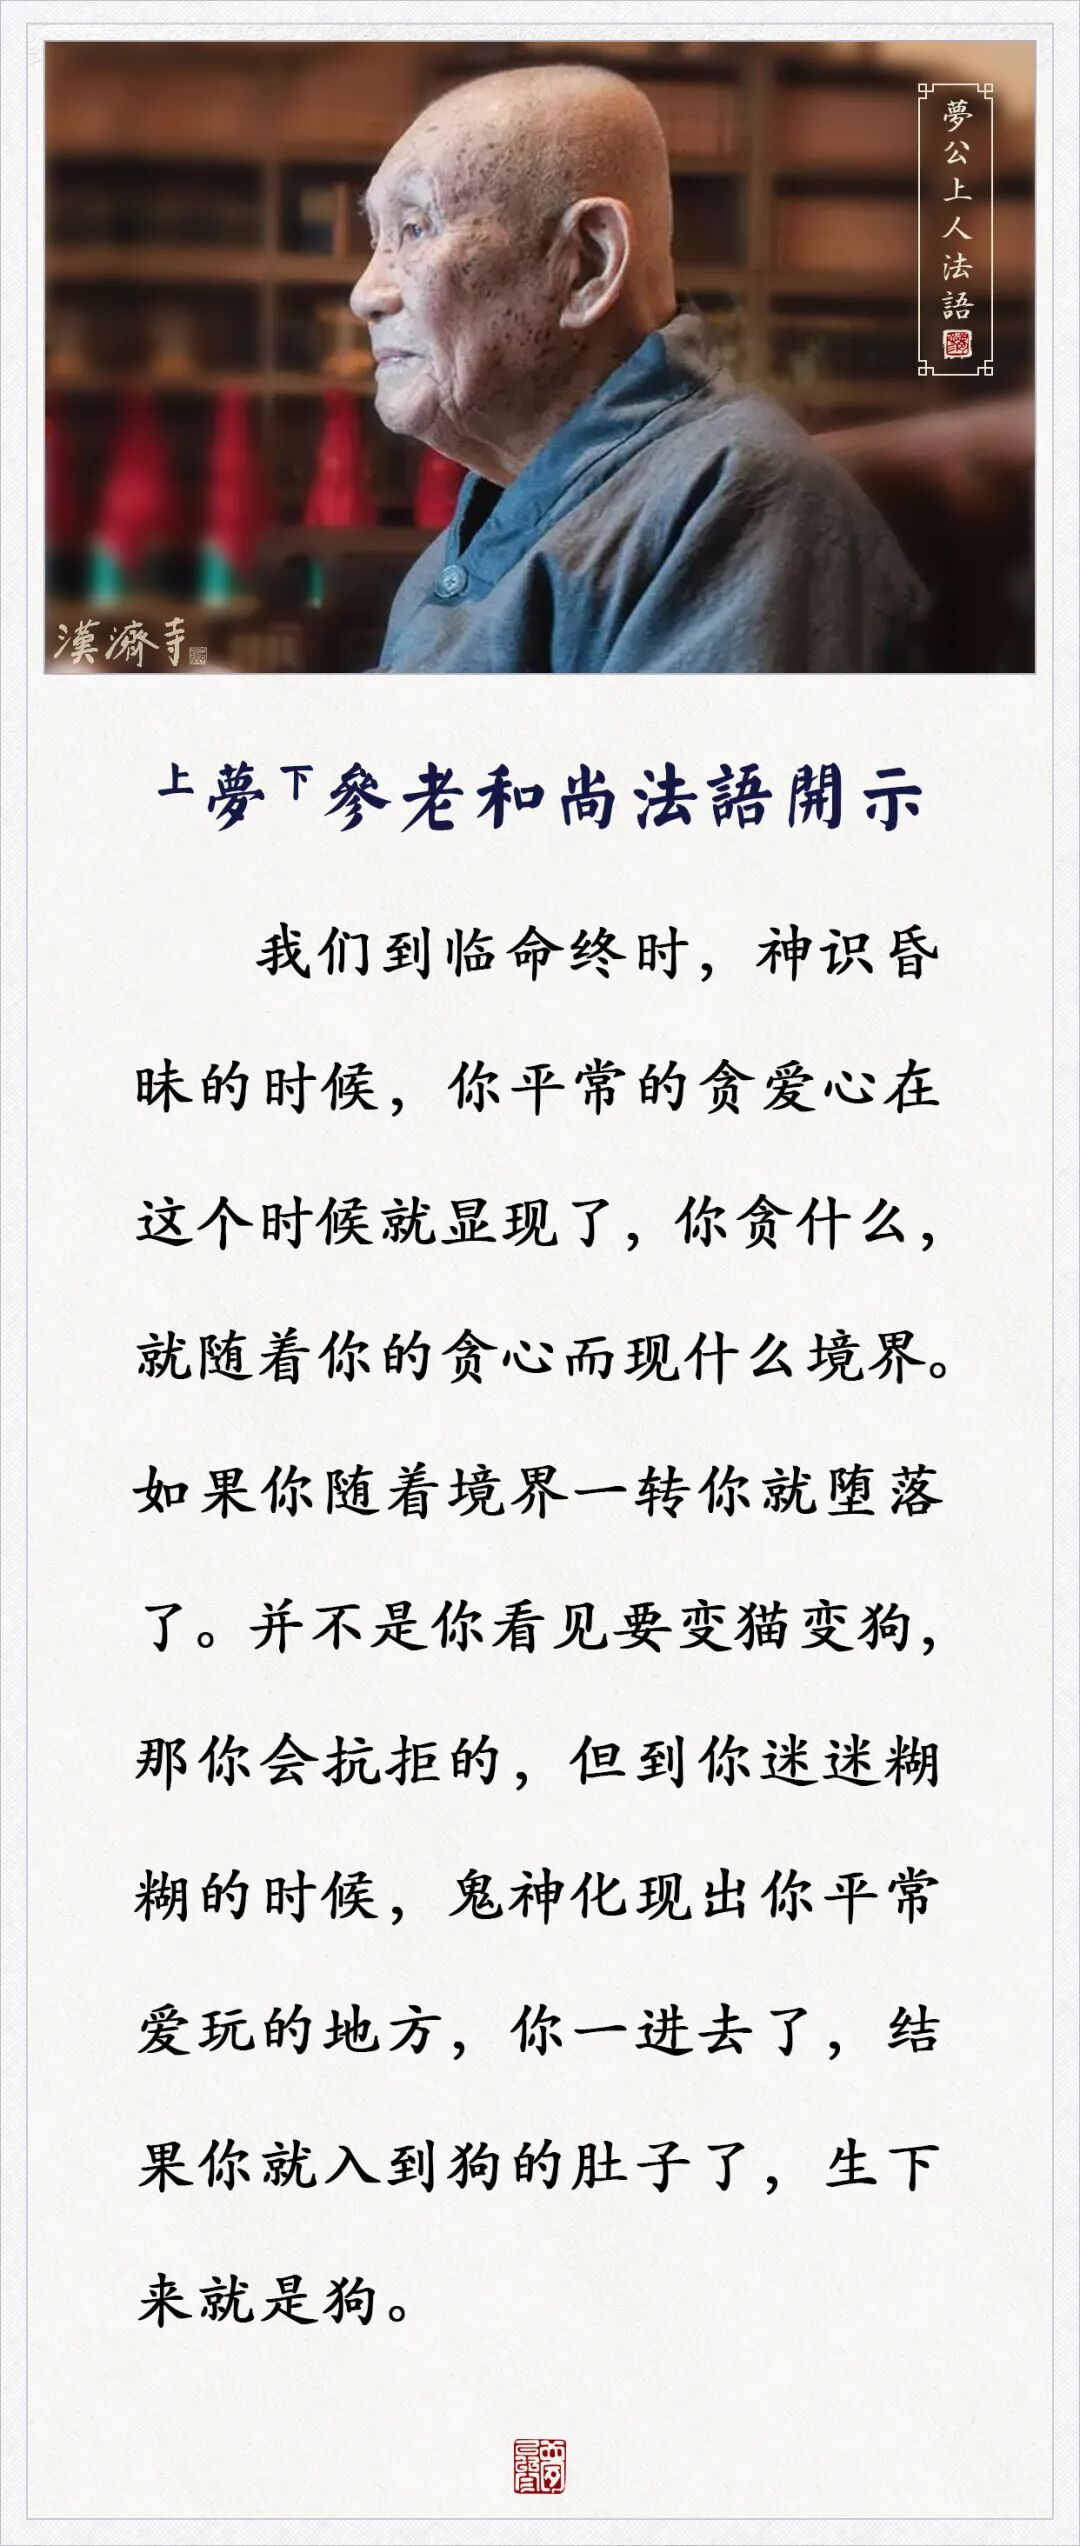 夢公上人法語
漢濟寺
上夢下參老和尚法語開示
我们到临命终时，神识昏
昧的时候，你平常的贪爱心在
这个时候就显现了，你贪什么，
就随着你的贪心而现什么境界。
如果你随着境界一转你就堕落
了。并不是你看见要变猫变狗，
那你会抗拒的，但到你迷迷糊
糊的时候，鬼神化现出你平常
爱玩的地方，你一进去了，结
果你就入到狗的肚子了，生下
来就是狗。